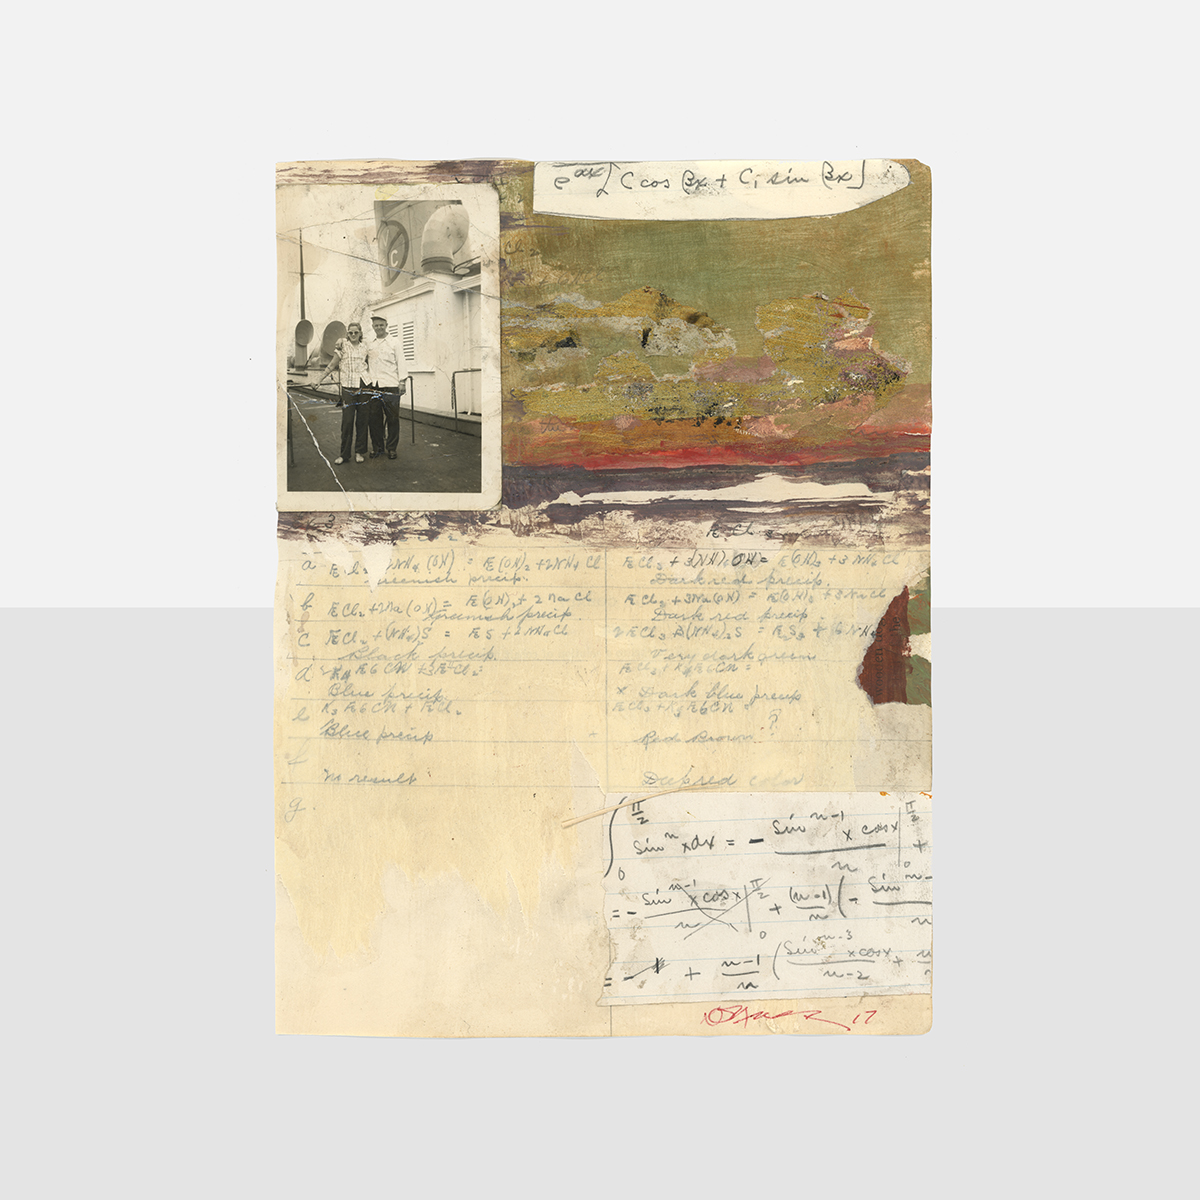 e^αx[C cos βx + C₁ sin βx]
C
Cl₂
3
a
NH₄(OH) = Fe(OH)₂ + 2NH₄Cl
greenish precip.
b
FeCl₂ + 2Na(OH) = Fe(OH)₂ + 2NaCl
greenish precip.
c
FeCl₂ + (NH₄)₂S = FeS + 2NH₄Cl
Black precip.
d
Blue precip.
e
K₃Fe6CN + FeCl₂
Blue precip
f
No result
g.
FeCl₃
FeCl₃ + 3(NH₄)OH = Fe(OH)₃ + 3NH₄Cl
Dark red precip.
FeCl₃ + 3Na(OH) = Fe(OH)₃ + 3NaCl
Dark red precip.
2FeCl₃ 3(NH₄)₂S = Fe₂S₃ + 6NH₄
Very dark green
x Dark blue precip
FeCl₃ + K₃Fe6CN =
Red Brown ?
Deep red color
∫₀^π/2 Sinⁿ x dx = - Sinⁿ⁻¹ x cos x / n |₀^π/2 +
= - Sinⁿ⁻¹ x cos x / n |₀^π/2 + (n-1)/n (- Sinⁿ⁻ / n
= - + n-1/n (Sinⁿ⁻³ x cos x / n-2 + n
17